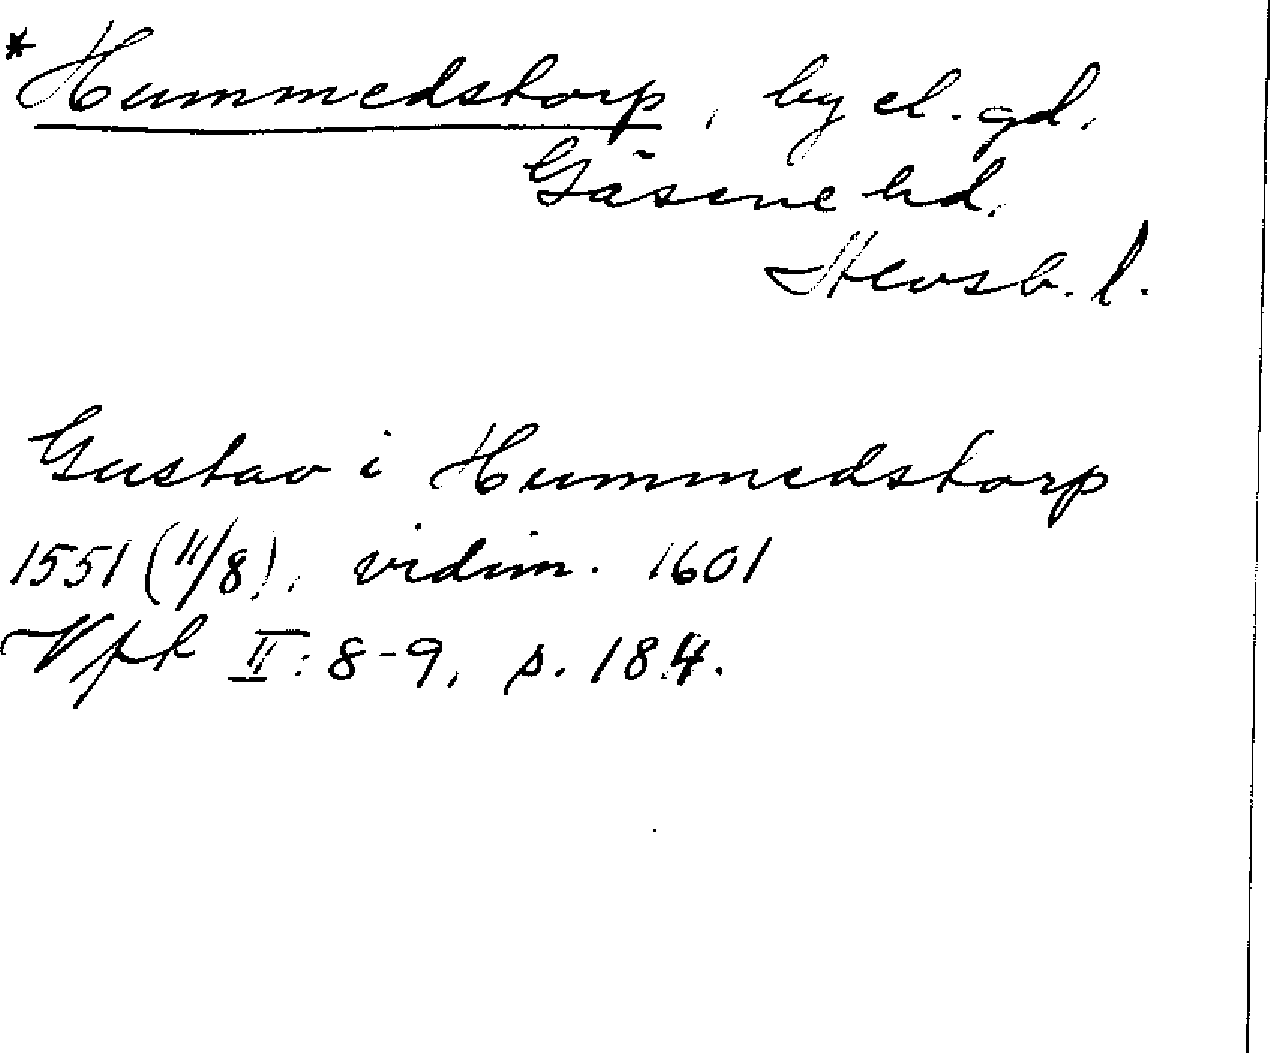 *Hummedstorp, by el. gd.
Gäsene hd.
Älvsb. l.
Gustav i Hummedstorp
1551 (11/8), vidim. 1601
Vfk II: 8-9, s. 184.